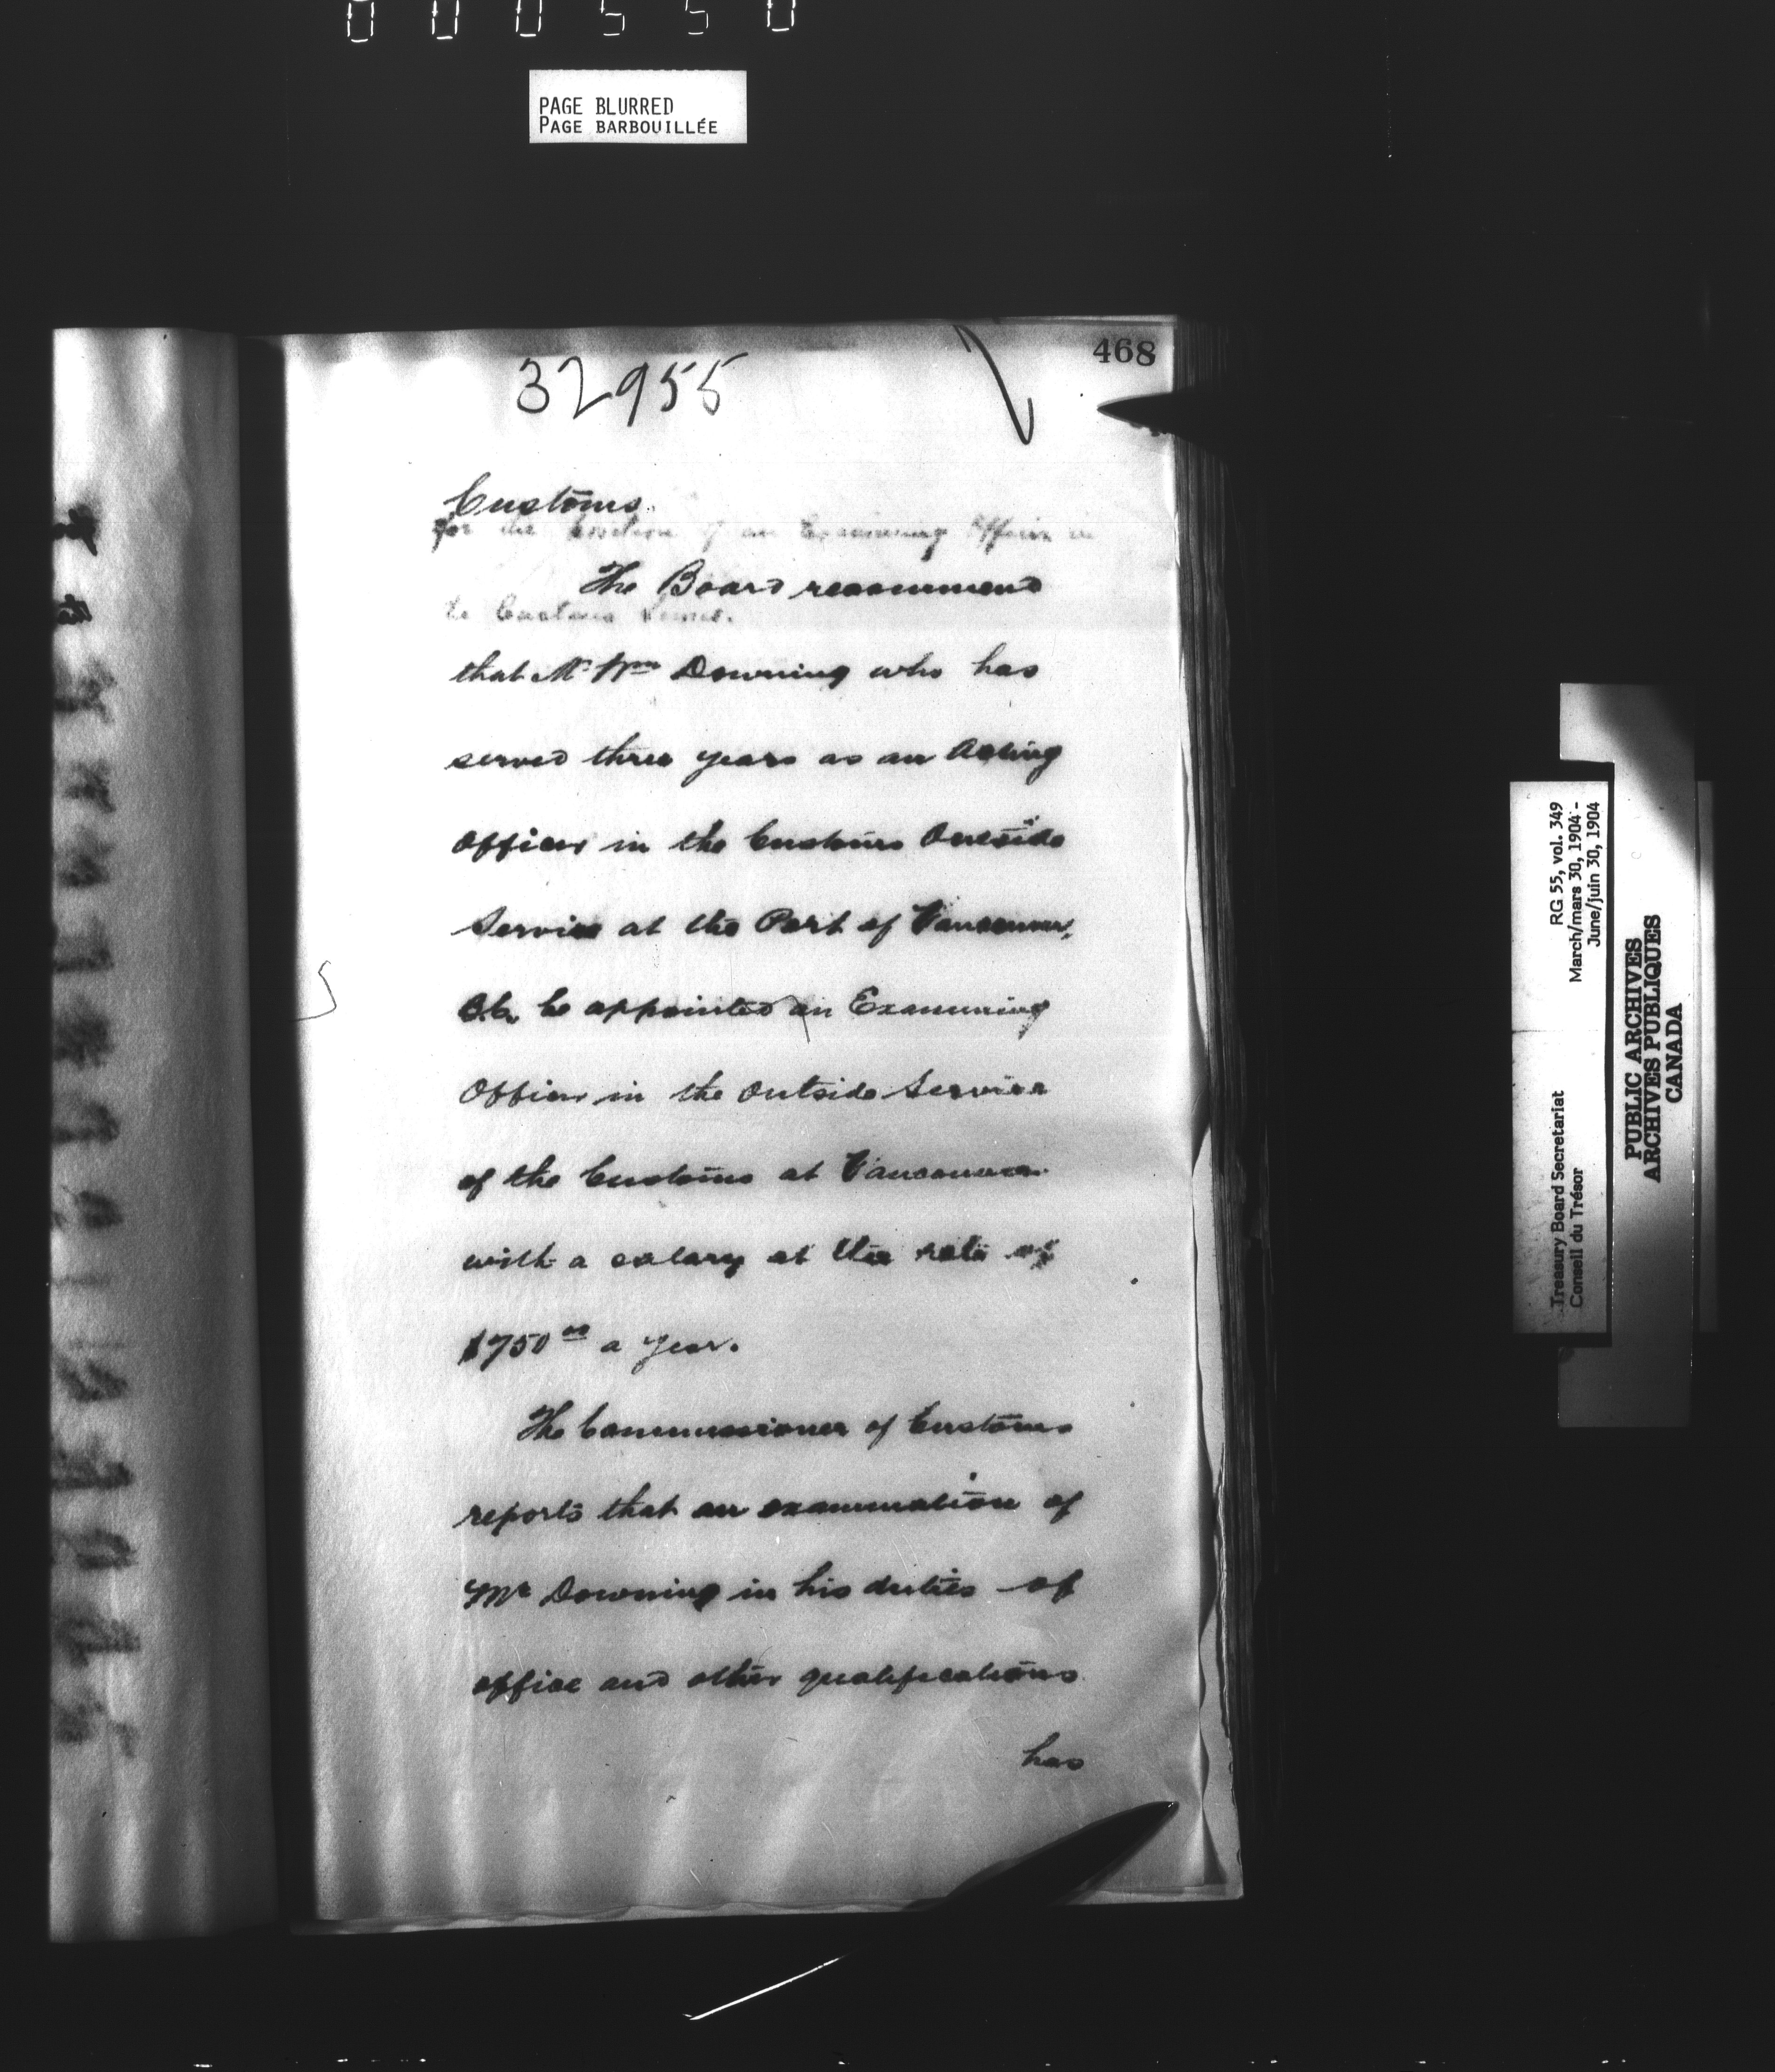 000550
PAGE BLURRED
PAGE BARBOUILLÉE
468
32955
Customs.
for the position of an Examining Officer in
The Board recommend
the Customs
that Mr Wm Downing who has
served three years as an Acting
Officer in the Customs Outside
Service at the Port of Vancouver,
B.C. be appointed an Examining
Officer in the Outside Service
of the Customs at Vancouver
with a salary at the rate of
$750 00 a year.
The Commissioner of Customs
reports that an examination of
Mr Downing in his duties of
office and other qualifications
has
RG 55, vol. 349
March/mars 30, 1904 -
June/juin 30, 1904
Treasury Board Secretariat
Conseil du Trésor
PUBLIC ARCHIVES
ARCHIVES PUBLIQUES
CANADA